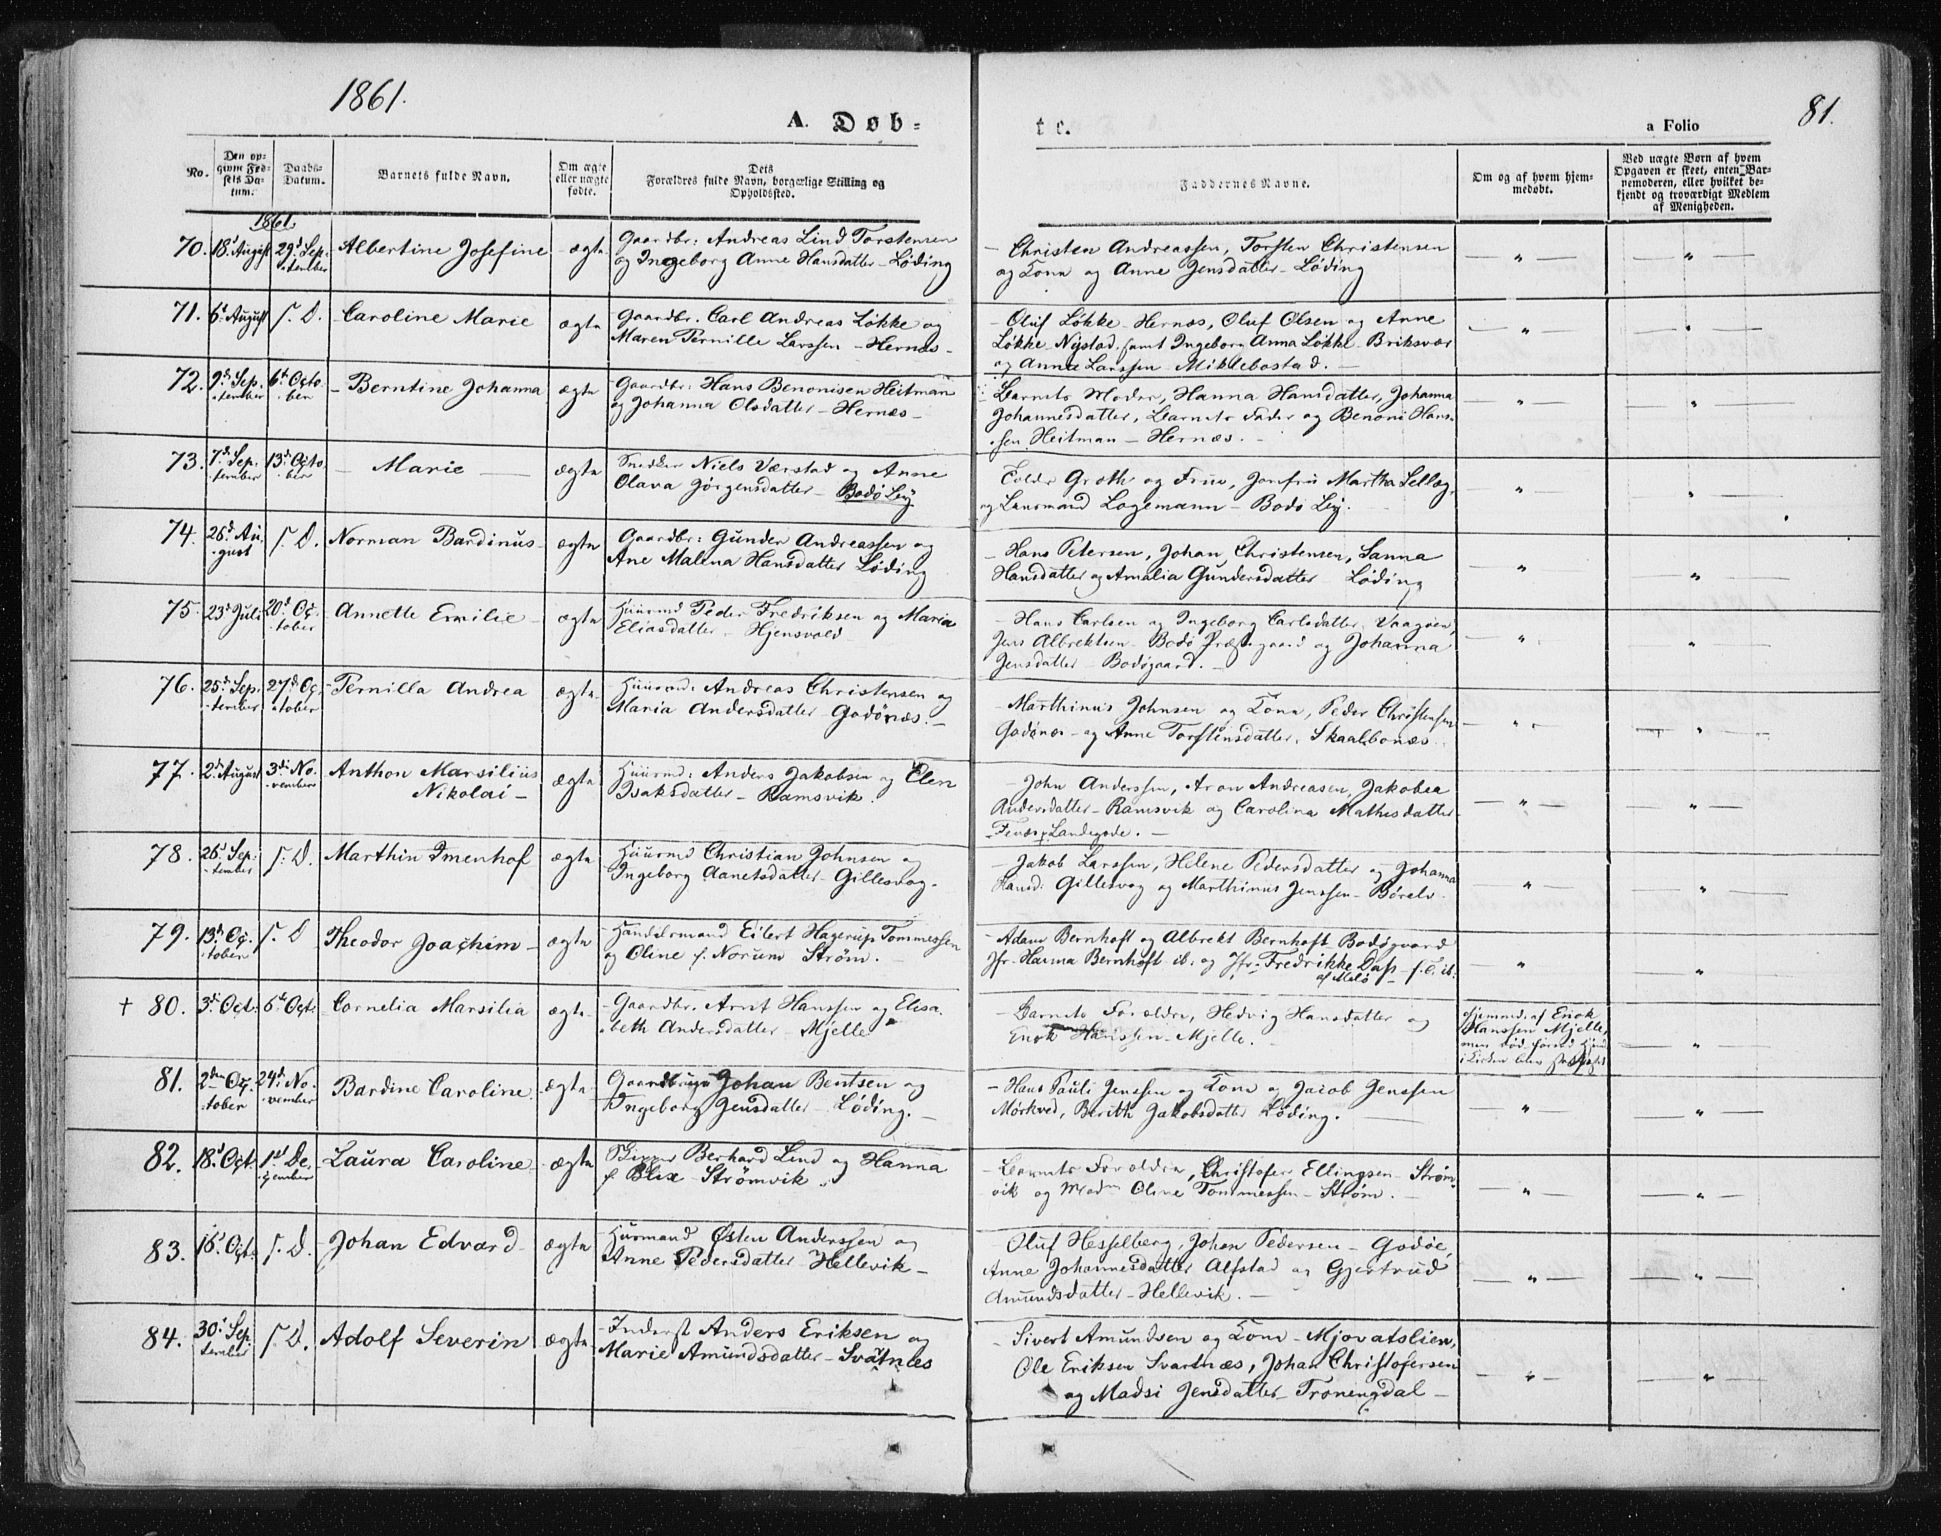 1861.
A. Døb-
te.
a Folio
81.
No.
Den opgivne Fødsels Datum.
Daabs-Datum.
Barnets fulde Navn.
Om ægte eller uægte fødte.
Dets Forældres fulde Navn, borgerlige Stilling og Opholdssted.
Faddernes Navne.
Om og af hvem hjemmedøbt.
Ved uægte Børn af hvem Opgaven er skeet, enten Barnemoderen, eller hvilket bekjendt og troværdigt Medlem af Menigheden.
1861.
70. 18d August 29d September Albertine Josefine ægte Gaardbr: Andreas Lind Torstensen
og Ingeborg Anne Hansdatter - Løding
- Christen Andreassen, Torsten Christensen
og Kone og Anne Jensdatter - Løding
71. 6d August s. D. Caroline Marie ægte Gaardbr. Carl Andreas Løkke og
Maren Pernille Larssen - Hernæs -
- Oluf Løkke - Hernæs, Oluf Olsen og Anne
Løkke Nystad, samt Ingeborg Anna Løkke - Briksvær
og Anne Larssen Miklebostad. -
72. 9d September 6d October - Berntine Johanna ægte Gaardbr: Hans Benonisen Heitman
og Johanna Olsdatter - Hernæs -
Barnets Moder, Hanna Hansdatter, Johanna
Johannesdatter, Barnets Fader og Benoni Hans-
sen Heitman - Hernæs. -
73. 7d September 13d October - Marie - ægte Snedker Niels Værstad og Anne
Olava Jørgensdatter - Bodø Bÿ
Groth og Frue, Jomfru Martha
og Lensmand Lagemann - Bodø Bÿ.
74. 26d August s. D. Norman Bardinus ægte Gaardbr: Gunder Andreassen og
Ane Malena Hansdatter Løding
- Hans Petersen, Johan Christensen, Sanna
Hansdatter og Amalia Gundersdatter Løding
75. 23d Juli 20d October Annette Emilie ægte Huusmd Peder Fredriksen og Maria
Eliasdatter - Hjensvold
- Hans Carlsen og Ingeborg Carlsdatter Vaagøen,
Jens Albrektsen Bodø Præstegaard og Johanna
Jensdatter Bodøgaard. -
76. 25d September 27d October Pernilla Andrea ægte Huusmd: Andreas Christensen og
Maria Andersdatter - Godønæs. -
- Marthinus Johnsen og Kone, Peder Christensen
Godønæs - og Anne Torstensdatter, Skaalbonæs.
77. 2d August 3d November Anthon Marsilius
Nikolai - ægte Huusmd: Anders Jakobsen og Elen
Isaksdatter - Ramsvik.
- John Anderssen, Aron Andreasen, Jakobea
Andersdatter - Ramsvik og Carolina Mathisdatter
Fenæs p Landegode. -
78. 26d September s. D. Marthin Imenhof ægte Huusmd Christian Johnsen og
Ingeborg Aanetsdatter - Gillesvog.
- Jakob Larssen, Helene Pedersdatter og Johanna
Hansd: Gillesvog og Marthinus Jenssen - Børelv.
79. 13d October s. D Theodor Joachim - ægte Handelsmand Eilert Hagerup Tommessen
og Oline f. Norum Strøm. -
- Adam Bernhoft og Albrekt Bernhoft - Bodøgaard
Jfr. Hanna Bernhoft ib: og Jfr: Fredrikke Dass
af Melø
† 80. 3d Oct: 6d Oct: Cornelia Marsilia ægte Gaardbr. Arnt Hanssen og Elisa-
beth Andersdatter - Mjelle
- Barnets Forældre, Hedvig Hansdatter og
Enok Hanssen - Mjelle.
Hjemmed. af Enok
Hanssen Mjelle,
men død
81. 2den October 24d November Bardine Caroline ægte Gaardbruger Johan Bentsen og
Ingeborg Jensdatter - Løding. -
- Hans Pauli Jenssen og Kone og Jacob Jenssen
Mørkved, Berith Jakobsdatter Løding.
82. 18d Oct. 1st December Laura Caroline ægte Berhard Lind og Hanna
f. Blix - Strømvik.
- Barnets Forældre, Christofer Ellingsen Strøm-
vik og Madm Oline Tommessen - Strøm. -
83. 16d Oct. s. D. Johan Edvard ægte Huusmand Østen Anderssen og
Anne Pedersdatter Hellevik -
Oluf Hesselberg, Johan Pedersen - Godøe,
Anne Johannesdatter Alfstad og Gjertrud
Amundsdatter - Hellevik. -
84. 30d September s. D. Adolf Severin ægte - Inderst Anders Eriksen og
Marie Amundsdatter - Svatnes
- Sivert Amundsen og Kone - Mjovatslien,
Ole Eriksen Svartnæs, Johan Christofersen
og Madsi Jensdatter - Troningdal -